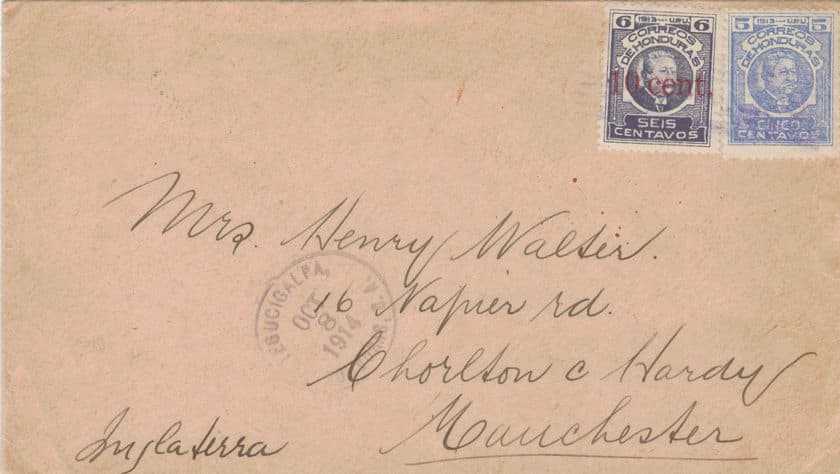 6 1913—U.P.U. 6
CORREOS
DE HONDURAS
10 cent.
SEIS
CENTAVOS
5 1913—U.P.U. 5
CORREOS
DE HONDURAS
CINCO
CENTAVOS
Mrs. Henry Walter.
16 Napier rd.
Chorlton c Hardy
Manchester
Inglaterra
TEGUCIGALPA,
OCT
8
1914